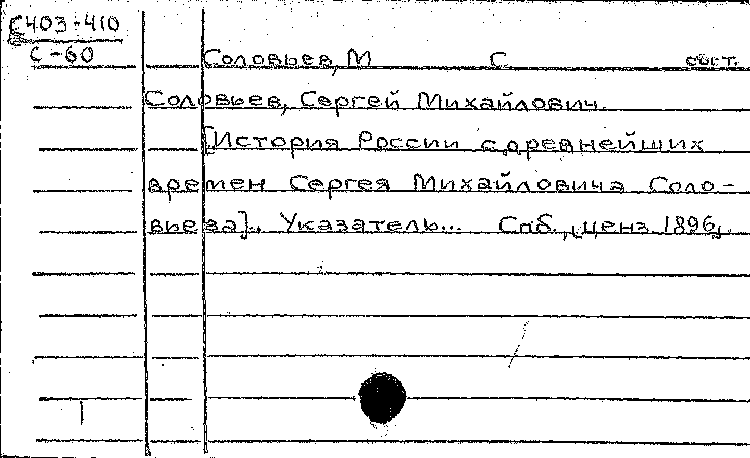 С403-410
С-60
Соловьев, М С сост.
Соловьев, Сергей Михайлович.
[История России с древнейших
времен Сергея Михайловича Соло-
вьева]. Указатель... Спб., [ценз. 1896].